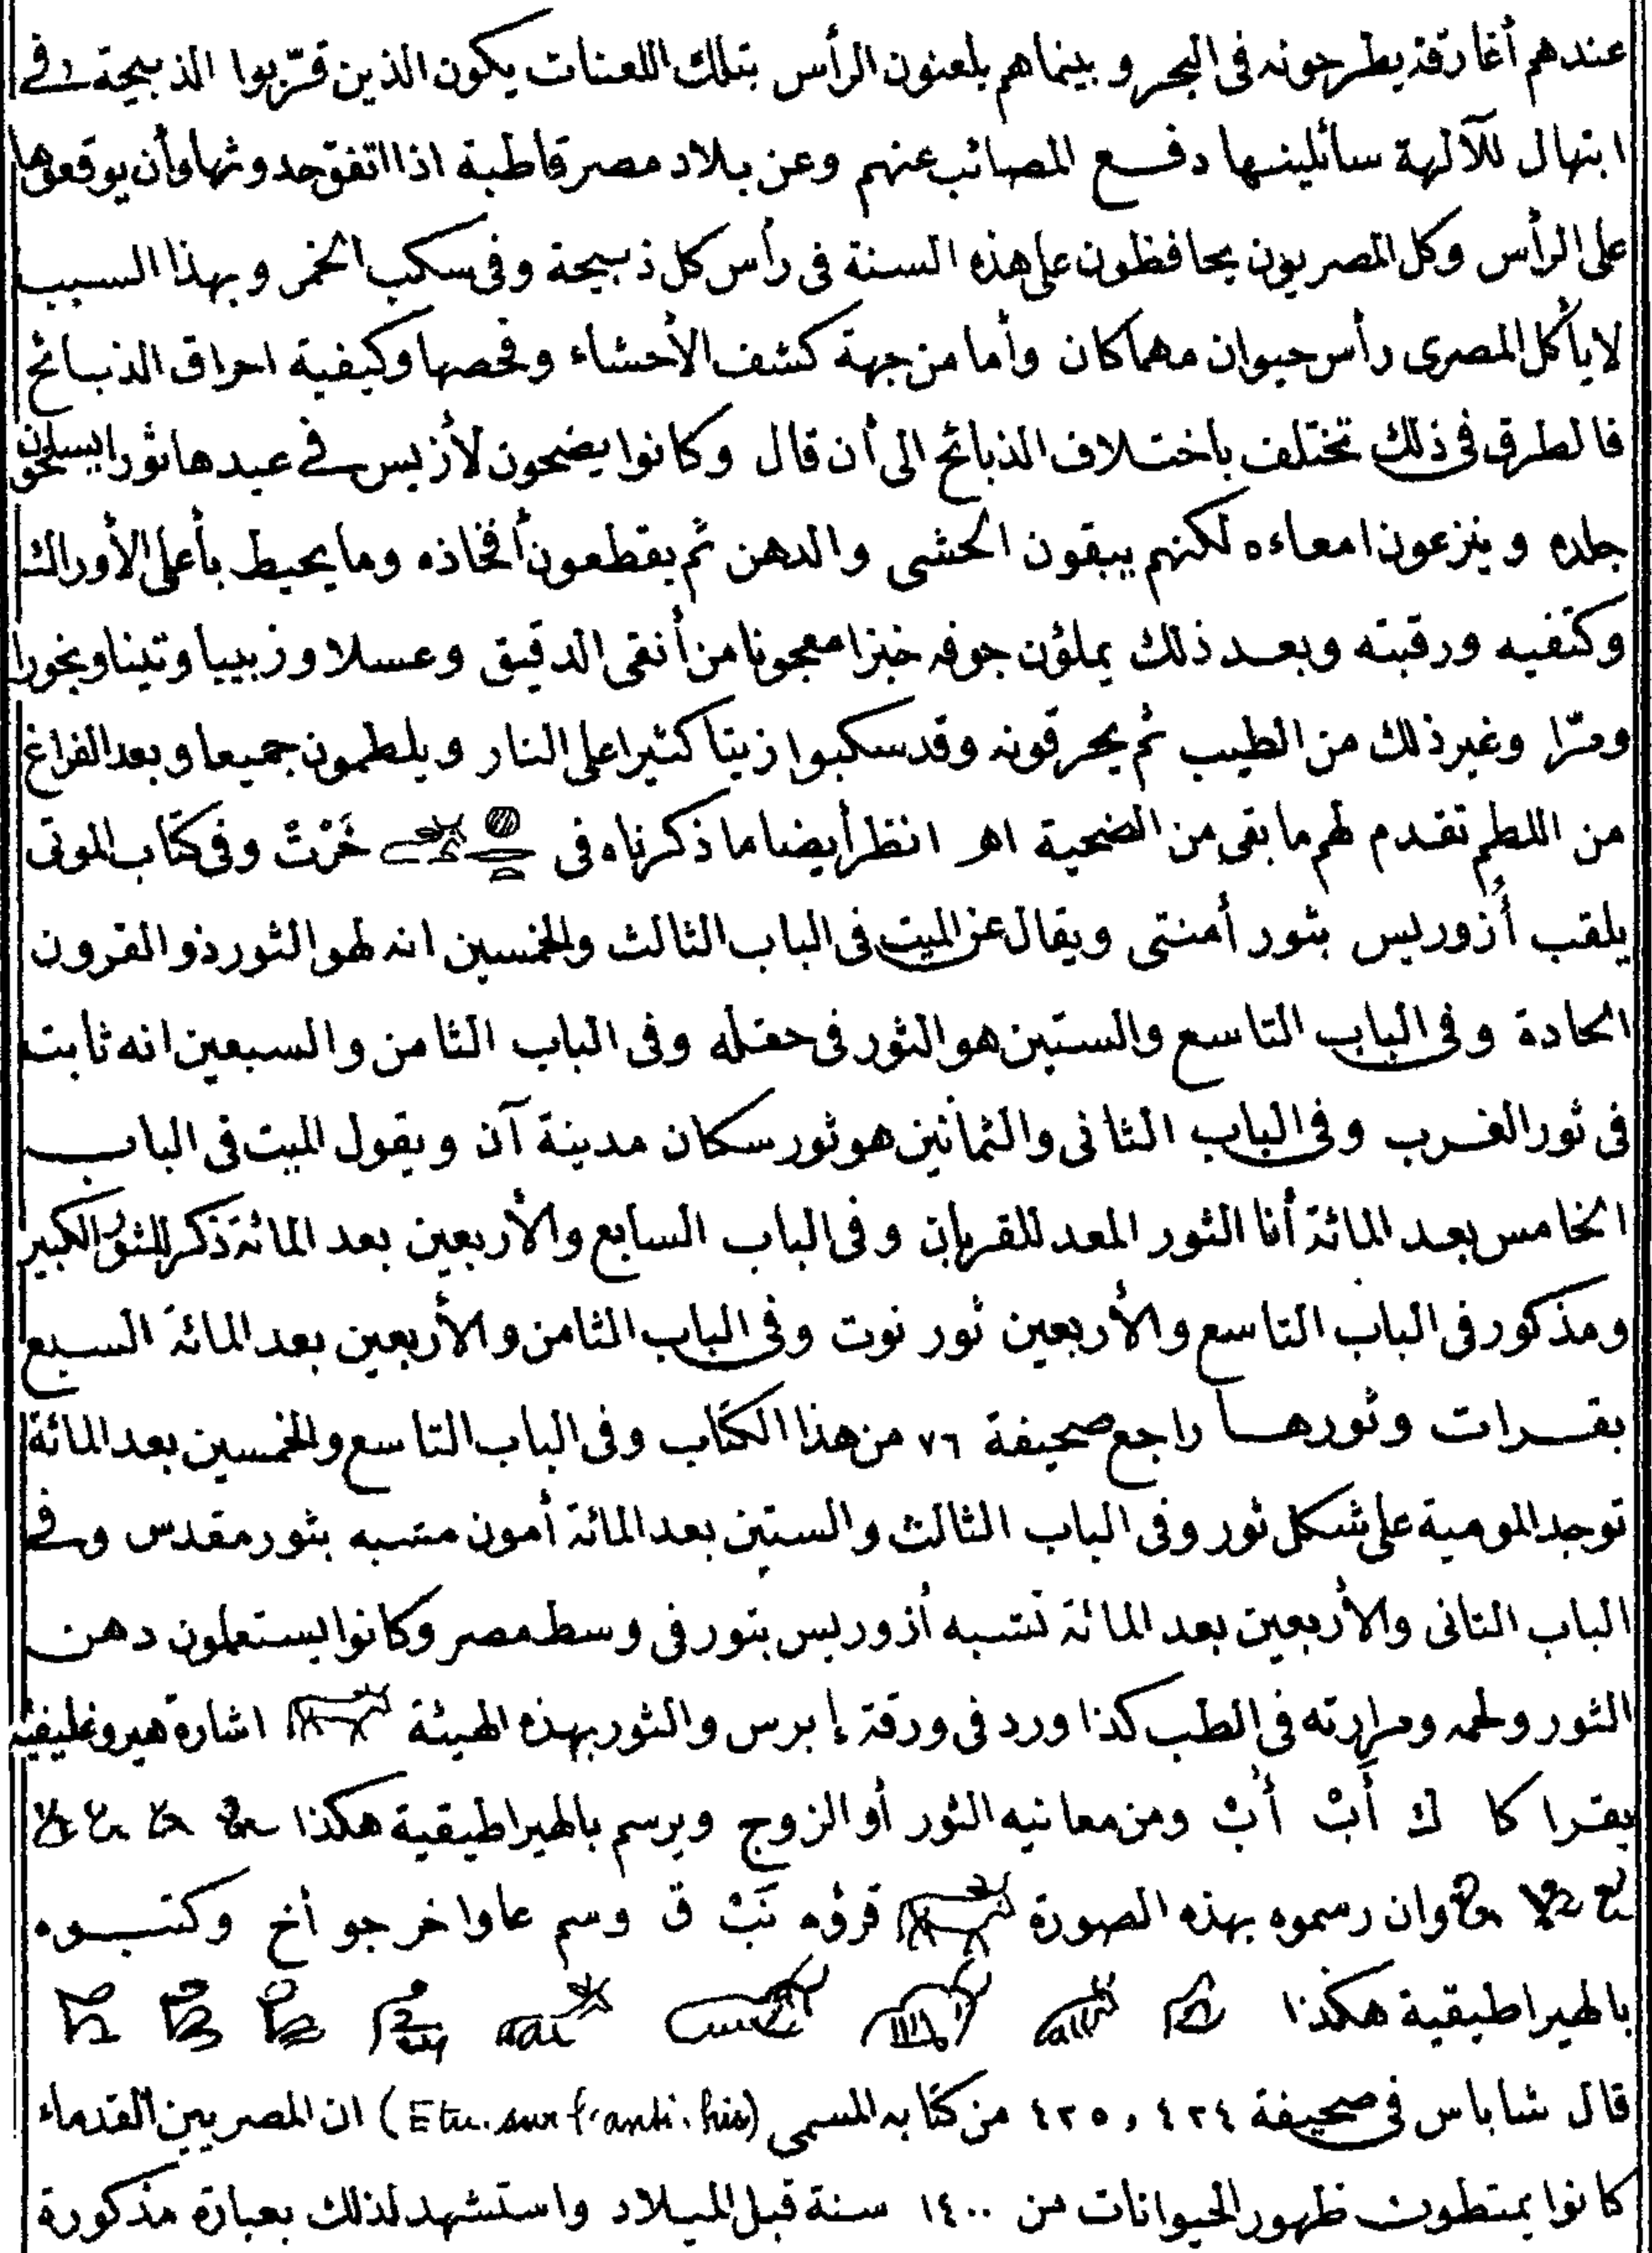 عندهم أغارقة يطرحونه فى البحر و بينماهم يلعنون الرأس بتلك اللعنات يكون الذين قرّبوا الذبيحة فى
ابتهال للآلهة سائلينها دفع المصائب عنهم وعن بلاد مصر قاطبة اذا اتفق حدوثها وأن يوقعها
على الرأس وكل المصريون يحافظون على هذه السنة فى رأس كل ذبيحة وفى سكب الخمر وبهذا السبب
لا يأكل المصرى رأس حيوان مهما كان وأما من جهة كشف الأحشاء وفحصها وكيفية احراق الذبائح
فالطرق فى ذلك تختلف باختلاف الذبائح الى أن قال وكانوا يضحون لأزيس فى عيدها ثورا يسلخون
جلده وينزعون امعاءه لكنهم يبقون الحشى والدهن ثم يقطعون أفخاذه وما يحيط بأعلى الأوراك
وكتفيه ورقبته وبعد ذلك يملؤن جوفه خبزا معجونا من أنقى الدقيق وعسلا وزبيبا وتينا وبخورا
ومرّا وغير ذلك من الطيب ثم يحرقونه وقد سكبوا زيتا كثيرا على النار ويلطمون جميعا وبعد الفراغ
من اللطم تقدم لهم ما بقى من الضحية اهـ انظر أيضا ما ذكرناه فى خَرْتْ وفى كتاب الموتى
يلقب أزوريس بثور أمنتى ويقال عن الميت فى الباب الثالث والخمسين انه لهو الثور ذو القرون
الحادة وفى الباب التاسع والستين هو الثور فى حقله وفى الباب الثامن والسبعين انه ثابت
فى ثور الغرب وفى الباب الثانى والثمانين هو ثور سكان مدينة آن ويقول الميت فى الباب
الخامس بعد المائة أنا الثور المعد للقربان وفى الباب السابع والأربعين بعد المائة ذكر للثور الكبير
ومذكور فى الباب التاسع والأربعين ثور نوت وفى الباب الثامن والأربعين بعد المائة السبع
بقرات وثورها راجع صحيفة ٧٦ من هذا الكتاب وفى الباب التاسع والخمسين بعد المائة
توجد المومية على شكل ثور وفى الباب الثالث والستين بعد المائة أمون مشبه بثور مقدس وفى
الباب الثانى والأربعين بعد المائة تشبه أزوريس بثور فى وسط مصر وكانوا يستعملون دهن
الثور ولحمه ومرارته فى الطب كذا ورد فى ورقة إبرس والثور بهذه الهيئة اشارة هيروغليفية
يقرا كا ك أَبْ أُبْ ومن معانيه الثور أو الزوج ويرسم بالهيراطيقية هكذا
وان رسموه بهذه الصورة قرؤه نَبْ ق وسم عاوا خر جو أخ وكتبوه
بالهيراطيقية هكذا
قال شاباس فى صحيفة ٤٢٤ و ٤٢٥ من كتابه المسمى (Etu. sur l'anti. his) ان المصريين القدماء
كانوا يمتطون ظهور الحيوانات من ١٤٠٠ سنة قبل الميلاد واستشهد لذلك بعبارة مذكورة